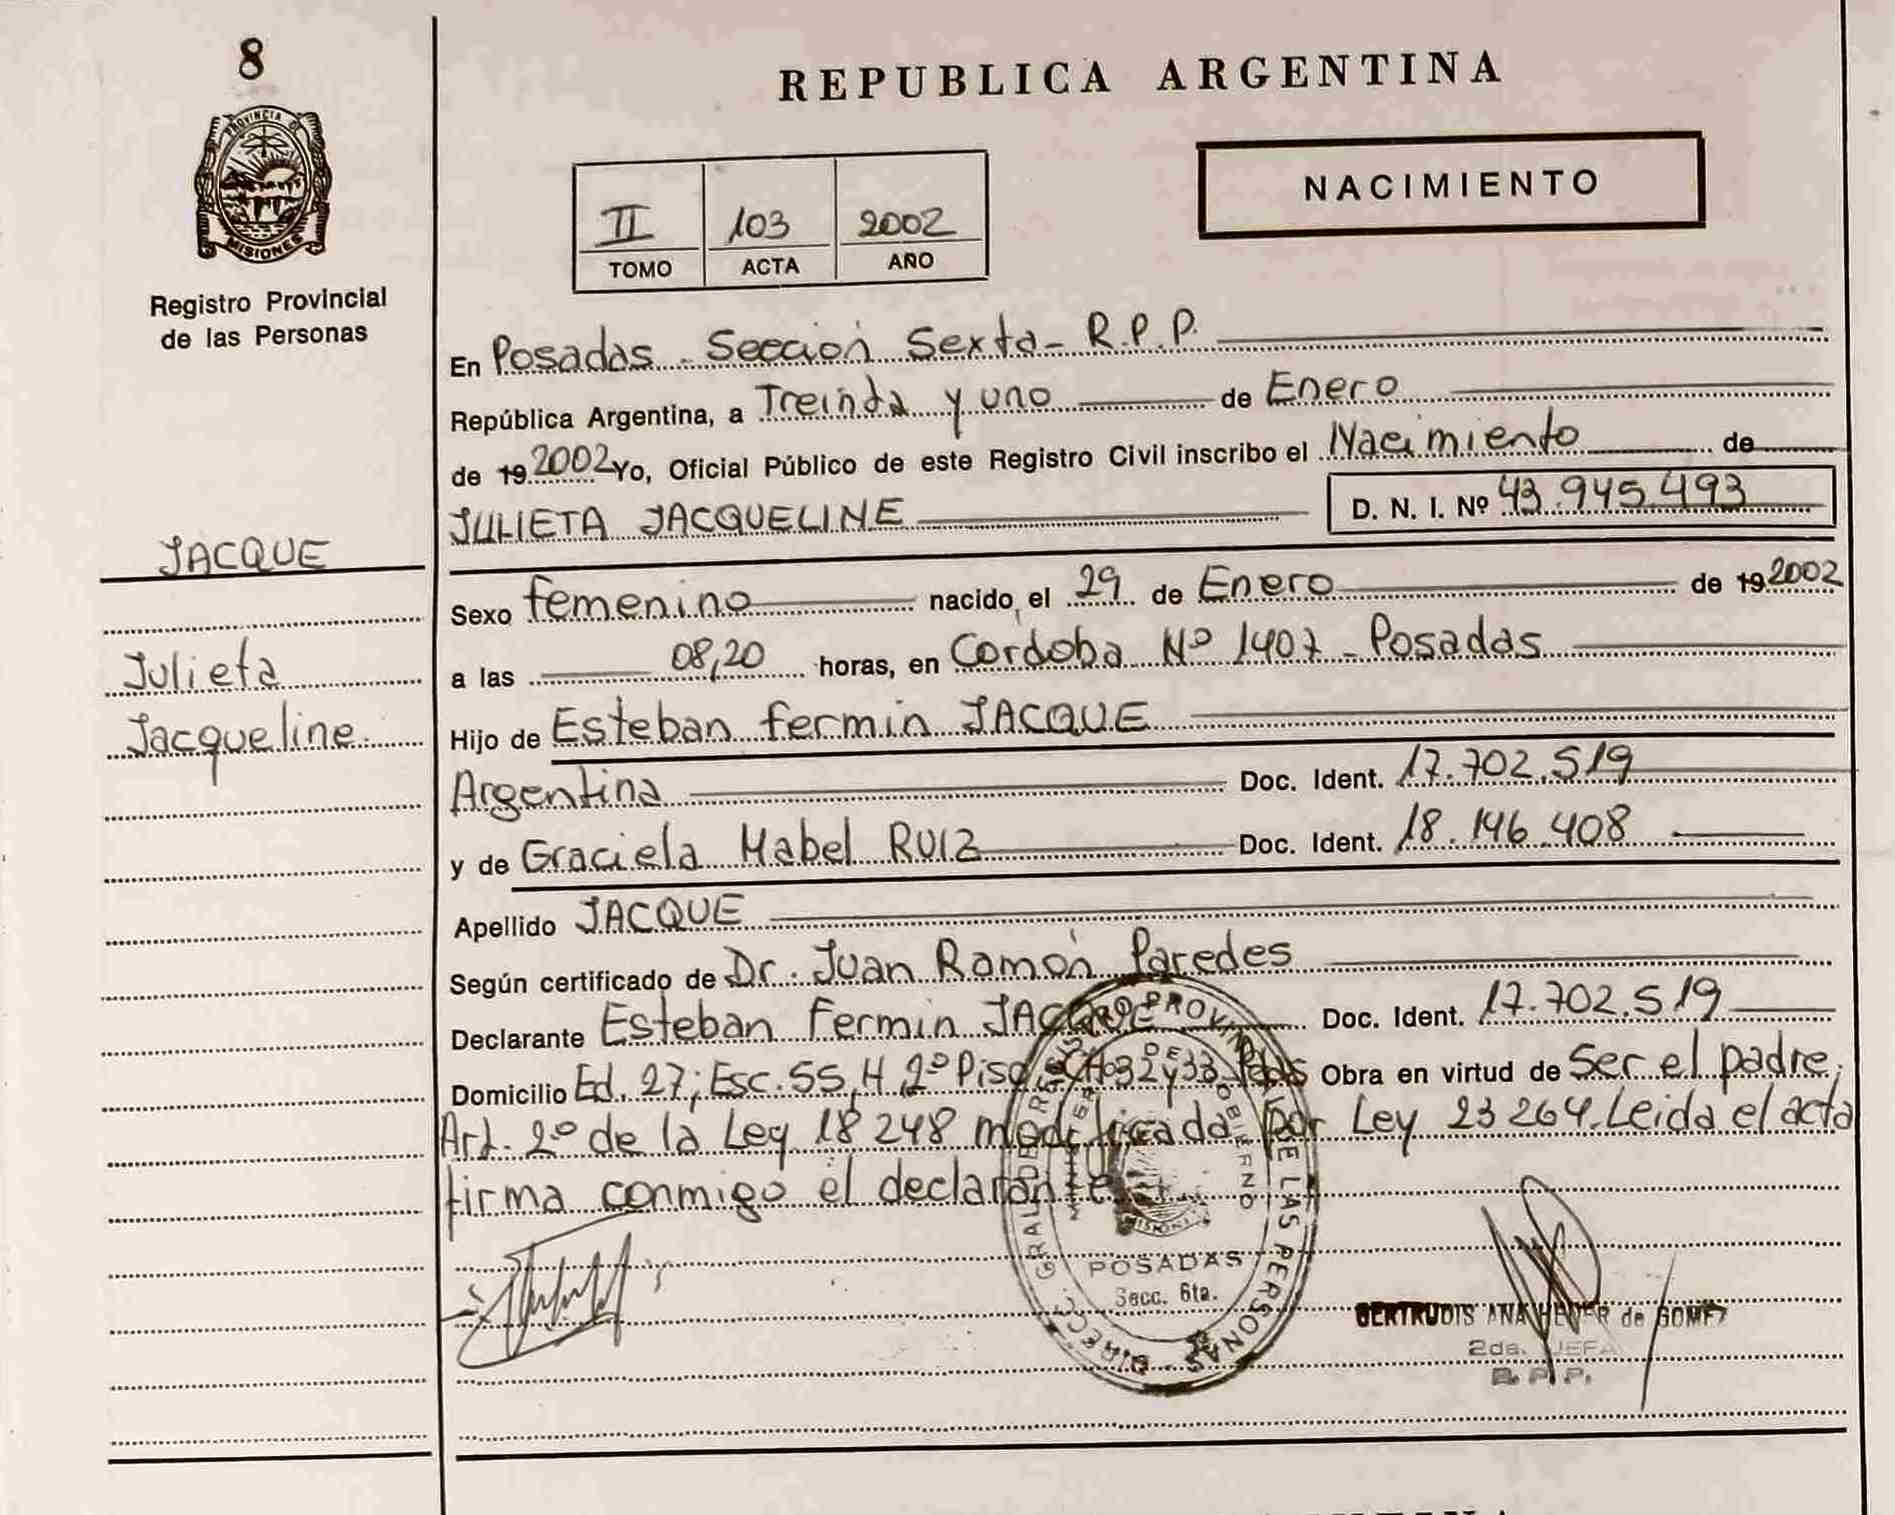 8
PROVINCIA DE
MISIONES
Registro Provincial
de las Personas
JACQUE
Julieta
Jacqueline.
REPUBLICA ARGENTINA
II 103 2002
TOMO ACTA AÑO
NACIMIENTO
En Posadas - Sección Sexta - R.P.P.
República Argentina, a Treinta y uno de Enero
de 19 2002 Yo, Oficial Público de este Registro Civil inscribo el Nacimiento de
JULIETA JACQUELINE D. N. I. Nº 43.945.493
Sexo femenino nacido el 29 de Enero de 19 2002
a las 08,20 horas, en Cordoba Nº 1407 - Posadas
Hijo de Esteban fermin JACQUE
Argentina Doc. Ident. 17.702.519
y de Graciela Mabel RUIZ Doc. Ident. 18.146.408
Apellido JACQUE
Según certificado de Dr. Juan Ramón Paredes
Declarante Esteban Fermin JACQUE Doc. Ident. 17.702.519
Domicilio Ed. 27; Esc. 55, H 2º Piso, CH 32 y 33 Obra en virtud de Ser el padre,
Art. 2º de la Ley 18248 modificada por Ley 23264. Leida el acta
firma conmigo el declarante
DIRECC. GRAL. DE REGISTRO PROVINCIAL DE LAS PERSONAS
DE GOBIERNO
MISIONES
POSADAS
Secc. 6ta.
GERTRUDIS ANA de GOMEZ
2da. JEFA
R. P. P.